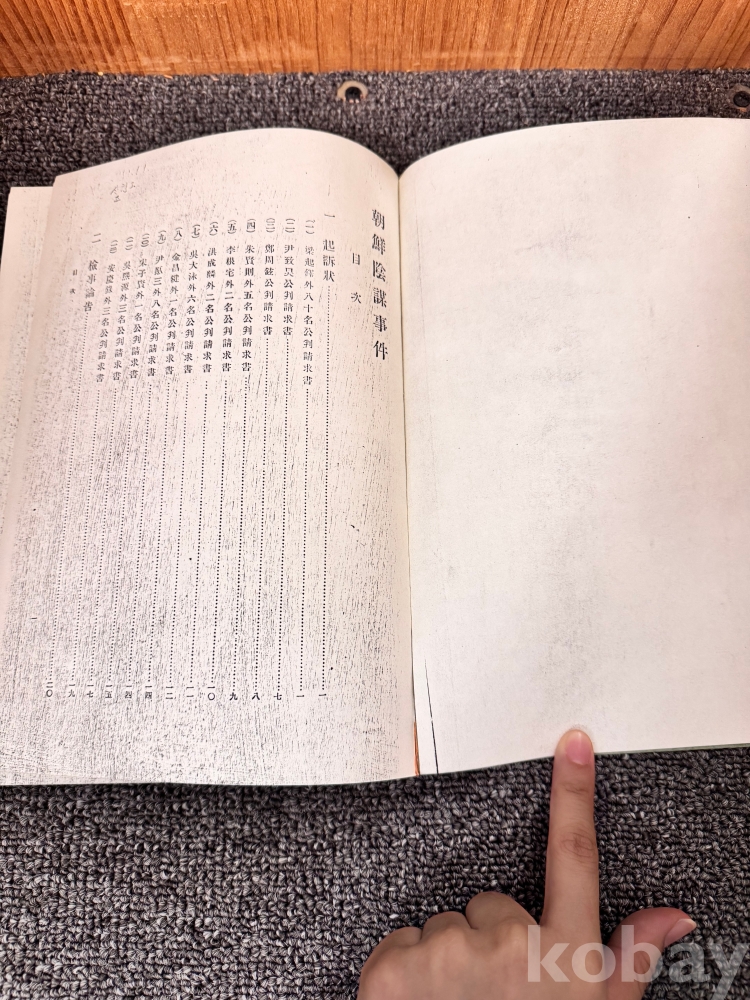 朝鮮陰謀事件
目次
一 起訴狀……一
(一) 梁起鐸外八十名公判請求書……一
(二) 尹致昊公判請求書……七
(三) 鄭周鉉公判請求書……八
(四) 朱賢則外五名公判請求書……九
(五) 李根宅外二名公判請求書……一〇
(六) 洪成麟外二名公判請求書……一一
(七) 吳大泳外六名公判請求書……一二
(八) 金昌健外一名公判請求書……一四
(九) 尹愿三外八名公判請求書……一四
(一〇) 宋子賢外一名公判請求書……一五
(一一) 吳熙源外三名公判請求書……一七
(一二) 安慶祿外三名公判請求書……一九
二 檢事論告……二〇
目次
kobay